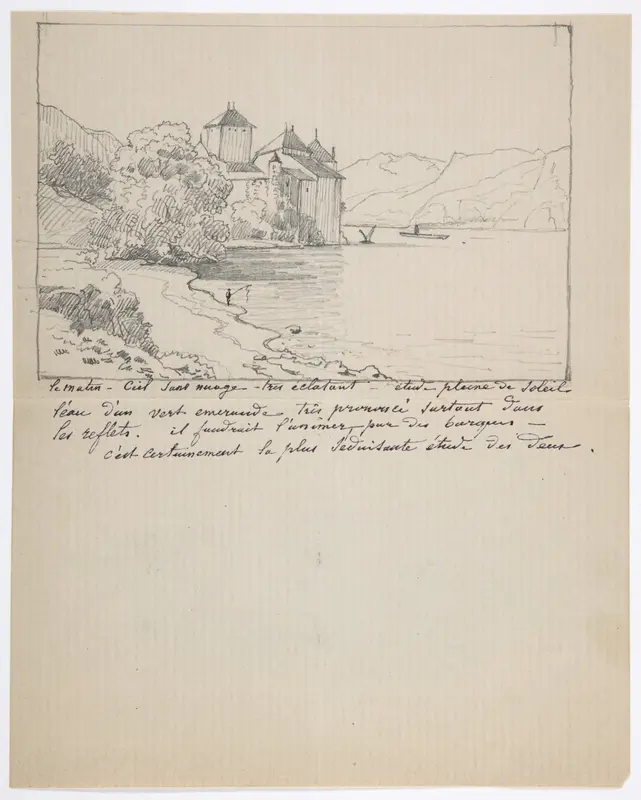 le matin – Ciel sans nuage – très éclatant – étude pleine de soleil
l'eau d'un vert emeraude très prononcé surtout dans
les reflets. il faudrait l'animer par des barques –
c'est certainement la plus séduisante étude des deux.